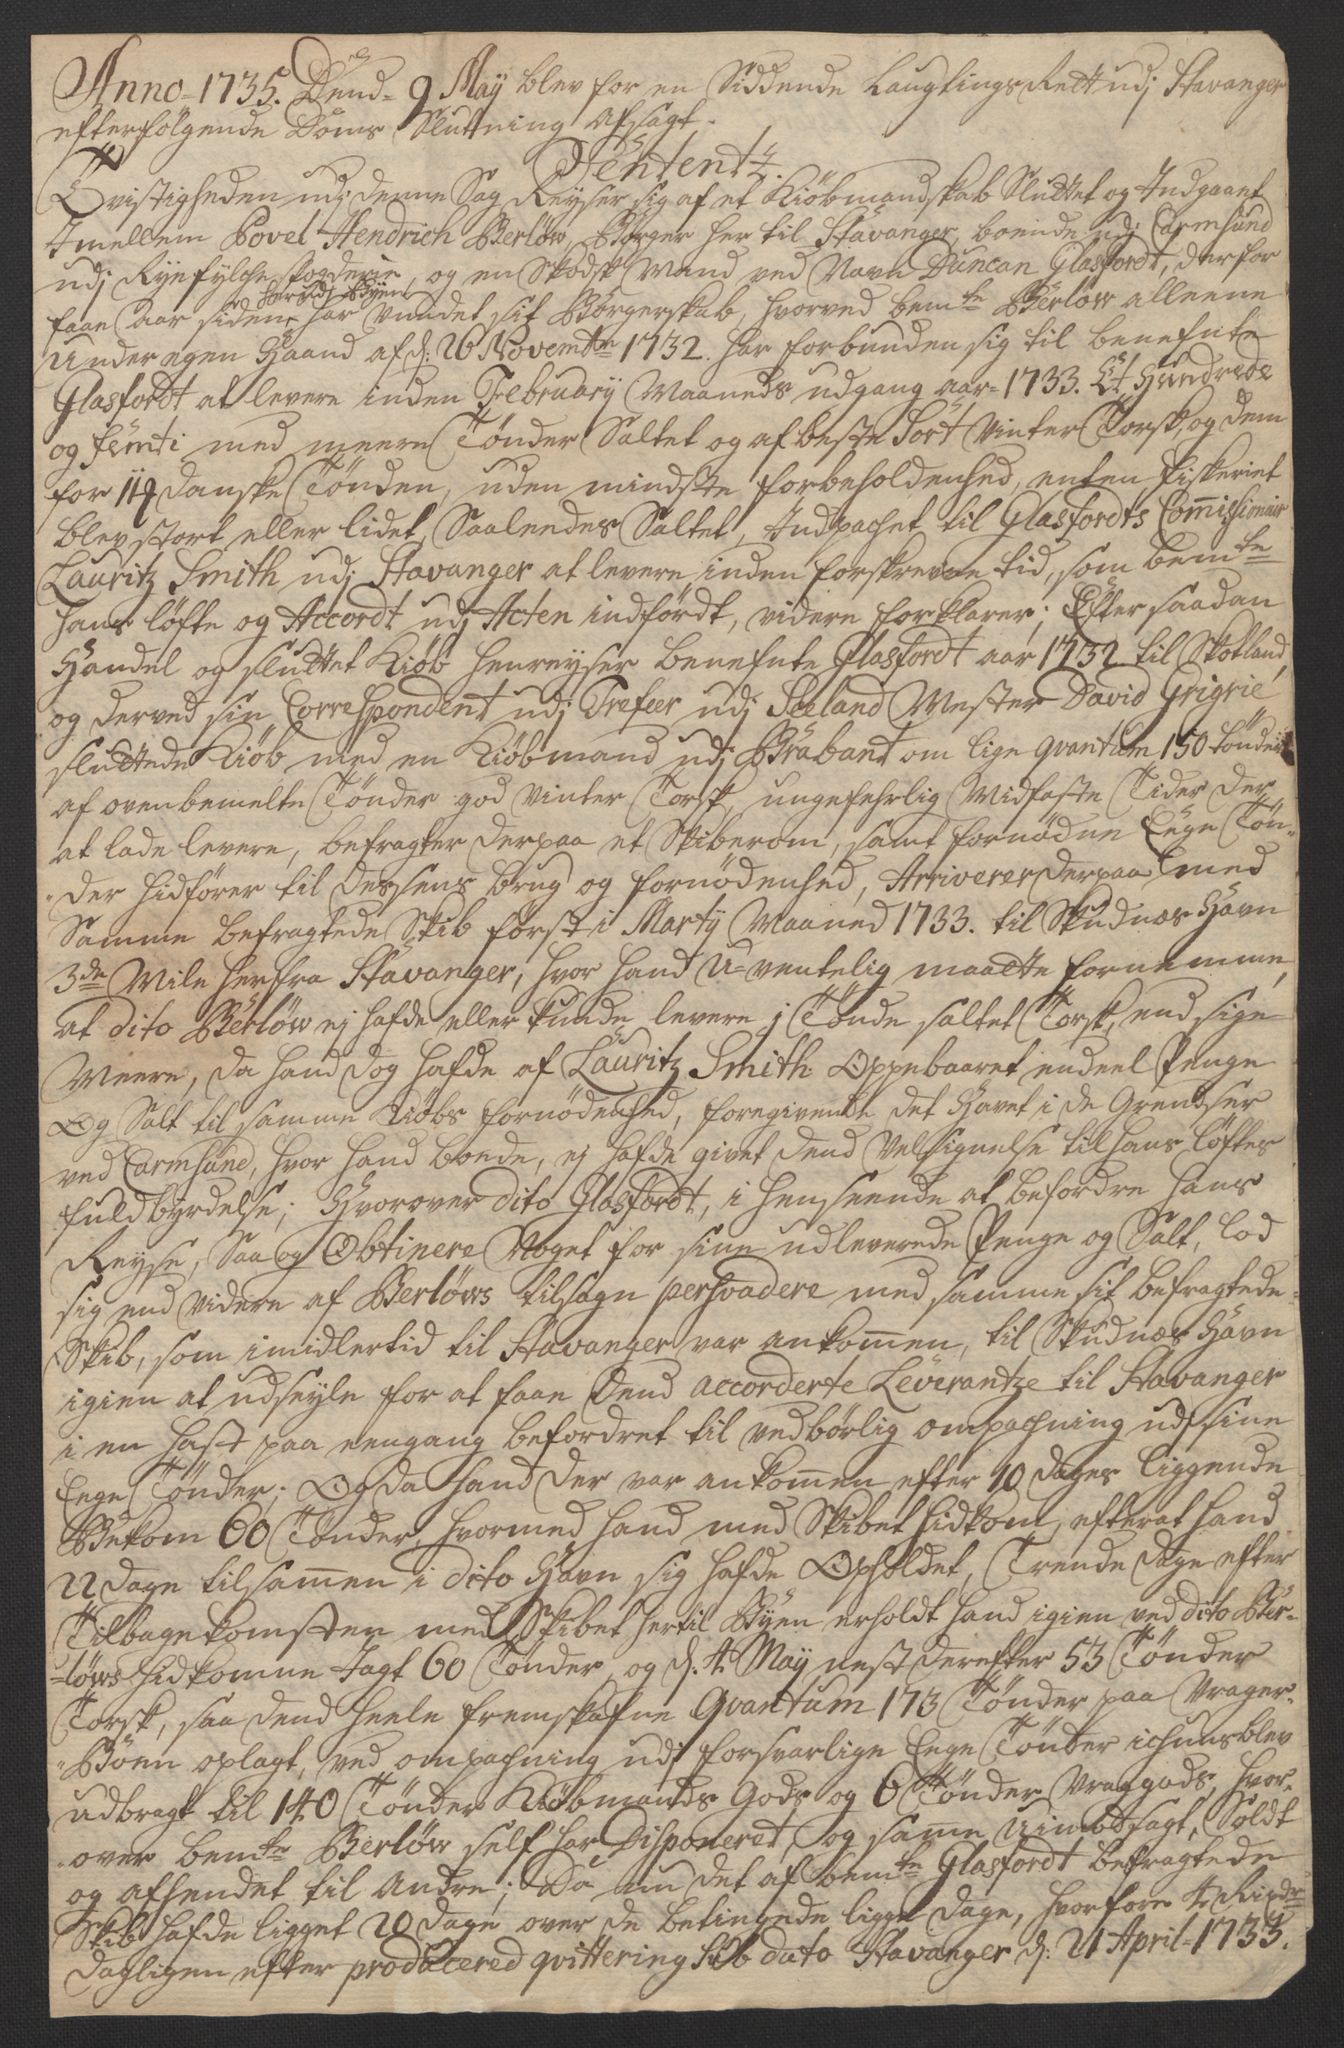 Anno = 1735. Dend = 9 Maÿ blev for en Siddende Laugtings Rett udj Stavanger
efterfölgende Doms Sluttning afsagt.
Sententz.
Qvistigheden udj denne Sag Reyser sig af et Kiöbmandskab Sluttet og Indgaaet
Imellem Povel Hendrich Berlöw, Borger her til Stavanger, boende udj Carmsund
udj Ryefylche fogderie, og en Skodsk Mand ved Navn Duncan Glasfordt, der for
herudj Byen
faae Aar siden har vundet sit Borgerskab, hvorved bem.te Berlöw alleene
under egen Haand af d: 26 Novemb.r 1732. har forbunden sig til benefnte
Glasfordt at levere inden Februarÿ Maaneds udgang aar = 1733. Et Hundrede
og femti med meere Tönder Saltet og af beste Sort Vinter Torsk, og dem
for 11 danske Tönden, uden mindste forbeholdenhed, enten fiskeriet
blev stort eller lidet, Saaledes Saltet, Indpachet til Glasfordts Commissionair
Lauritz Smith udj Stavanger at levere inden forskrevne tid, som bem.te
hans löfte og Accordt udj Acten indfördt, videre forklarer; Efter saadan
Handel og sluttet Kiöb henreyser benefnte Glasfordt aar 1732 til Skotland,
og derved sin Correspondent udj Trefeer udj Seeland Mester David Grigrie
sluttede Kiöb med en Kiöbmand udj Braband om lige qvantum 150 tönder
af ovenbemelte Tönder god Vinter Torsk, ungefehrlig Midfaste Tider der
at lade levere, befragter derpaa et Skiberom, samt fornödne Eege Tön-
der hidförer til dessens brug og fornödenhed, Arriverer derpaa med
Samme befragtede Skib först i Martÿ Maaned 1733. til Skudnæs Havn
3de Mile herfra Stavanger, hvor hand U=ventelig maatte fornemme,
at dito Berlöw ej hafde eller kunde levere j Tönde saltet Torsk, end sige
Meere, da hand dog hafde af Lauritz Smith Oppebaaret endeel Penge
Og Salt til samme Kiöbs fornödenhed, foregivende det Havet i de Grendser
ved Carmsund, hvor hand boede, ej hafde givet dend Velsignelse til hans löftes
fuldbyrdelse; Hvorover dito Glasfordt, i henseende at befordre hans
Reyse, Saa og Obtinere Noget for sine udleverede Penge og Salt, lod
sig end videre af Berlöws tilsagn persvadere med samme sit befragtede
Skib, som imidlertid til Stavanger var ankommen, til Skudnæs Havn
igien at udseyle for at faae dend accorderte Leverantze til Stavanger
i en hast paa eengang befordret til vedbörlig ompachning udj sine
Eege Tönder; Og da hand der var ankommen efter 10 dages liggende
Bekom 60 Tönder, hvormed hand med Skibet hidkom, efter at hand
22 dage tilsammen i dito Havn sig hafde Opholdet, Trende dage efter
Tilbagekomsten med Skibet hertil Byen erholdt hand igien ved dito Ber-
löws hidkomne Jagt 60 Tönder, og d. 4 Maÿ nest derefter 53 Tönder
Torsk, saa dend heele fremskafne Qvantum 173 Tönder paa Vrager-
Boen oplagt, ved ompachning udj forsvarlige Eege Tönder ichuns blev
udbragt til 140 Tönder Kiöbmands Gods og 6 Tönder Vraggods, hvor-
over bem.te Berlöw self har Disponeret, og samme Uimodsagt, Soldt
og afhendet til Andre; Da nu det af bem.te Glasfordt befragtede
Skib hafde ligget 20 dage over de betingede ligge dage, hvorfore 4 Rixdr.
dagligen efter producered qvittering sub dato Stavanger d: 21 April = 1733.